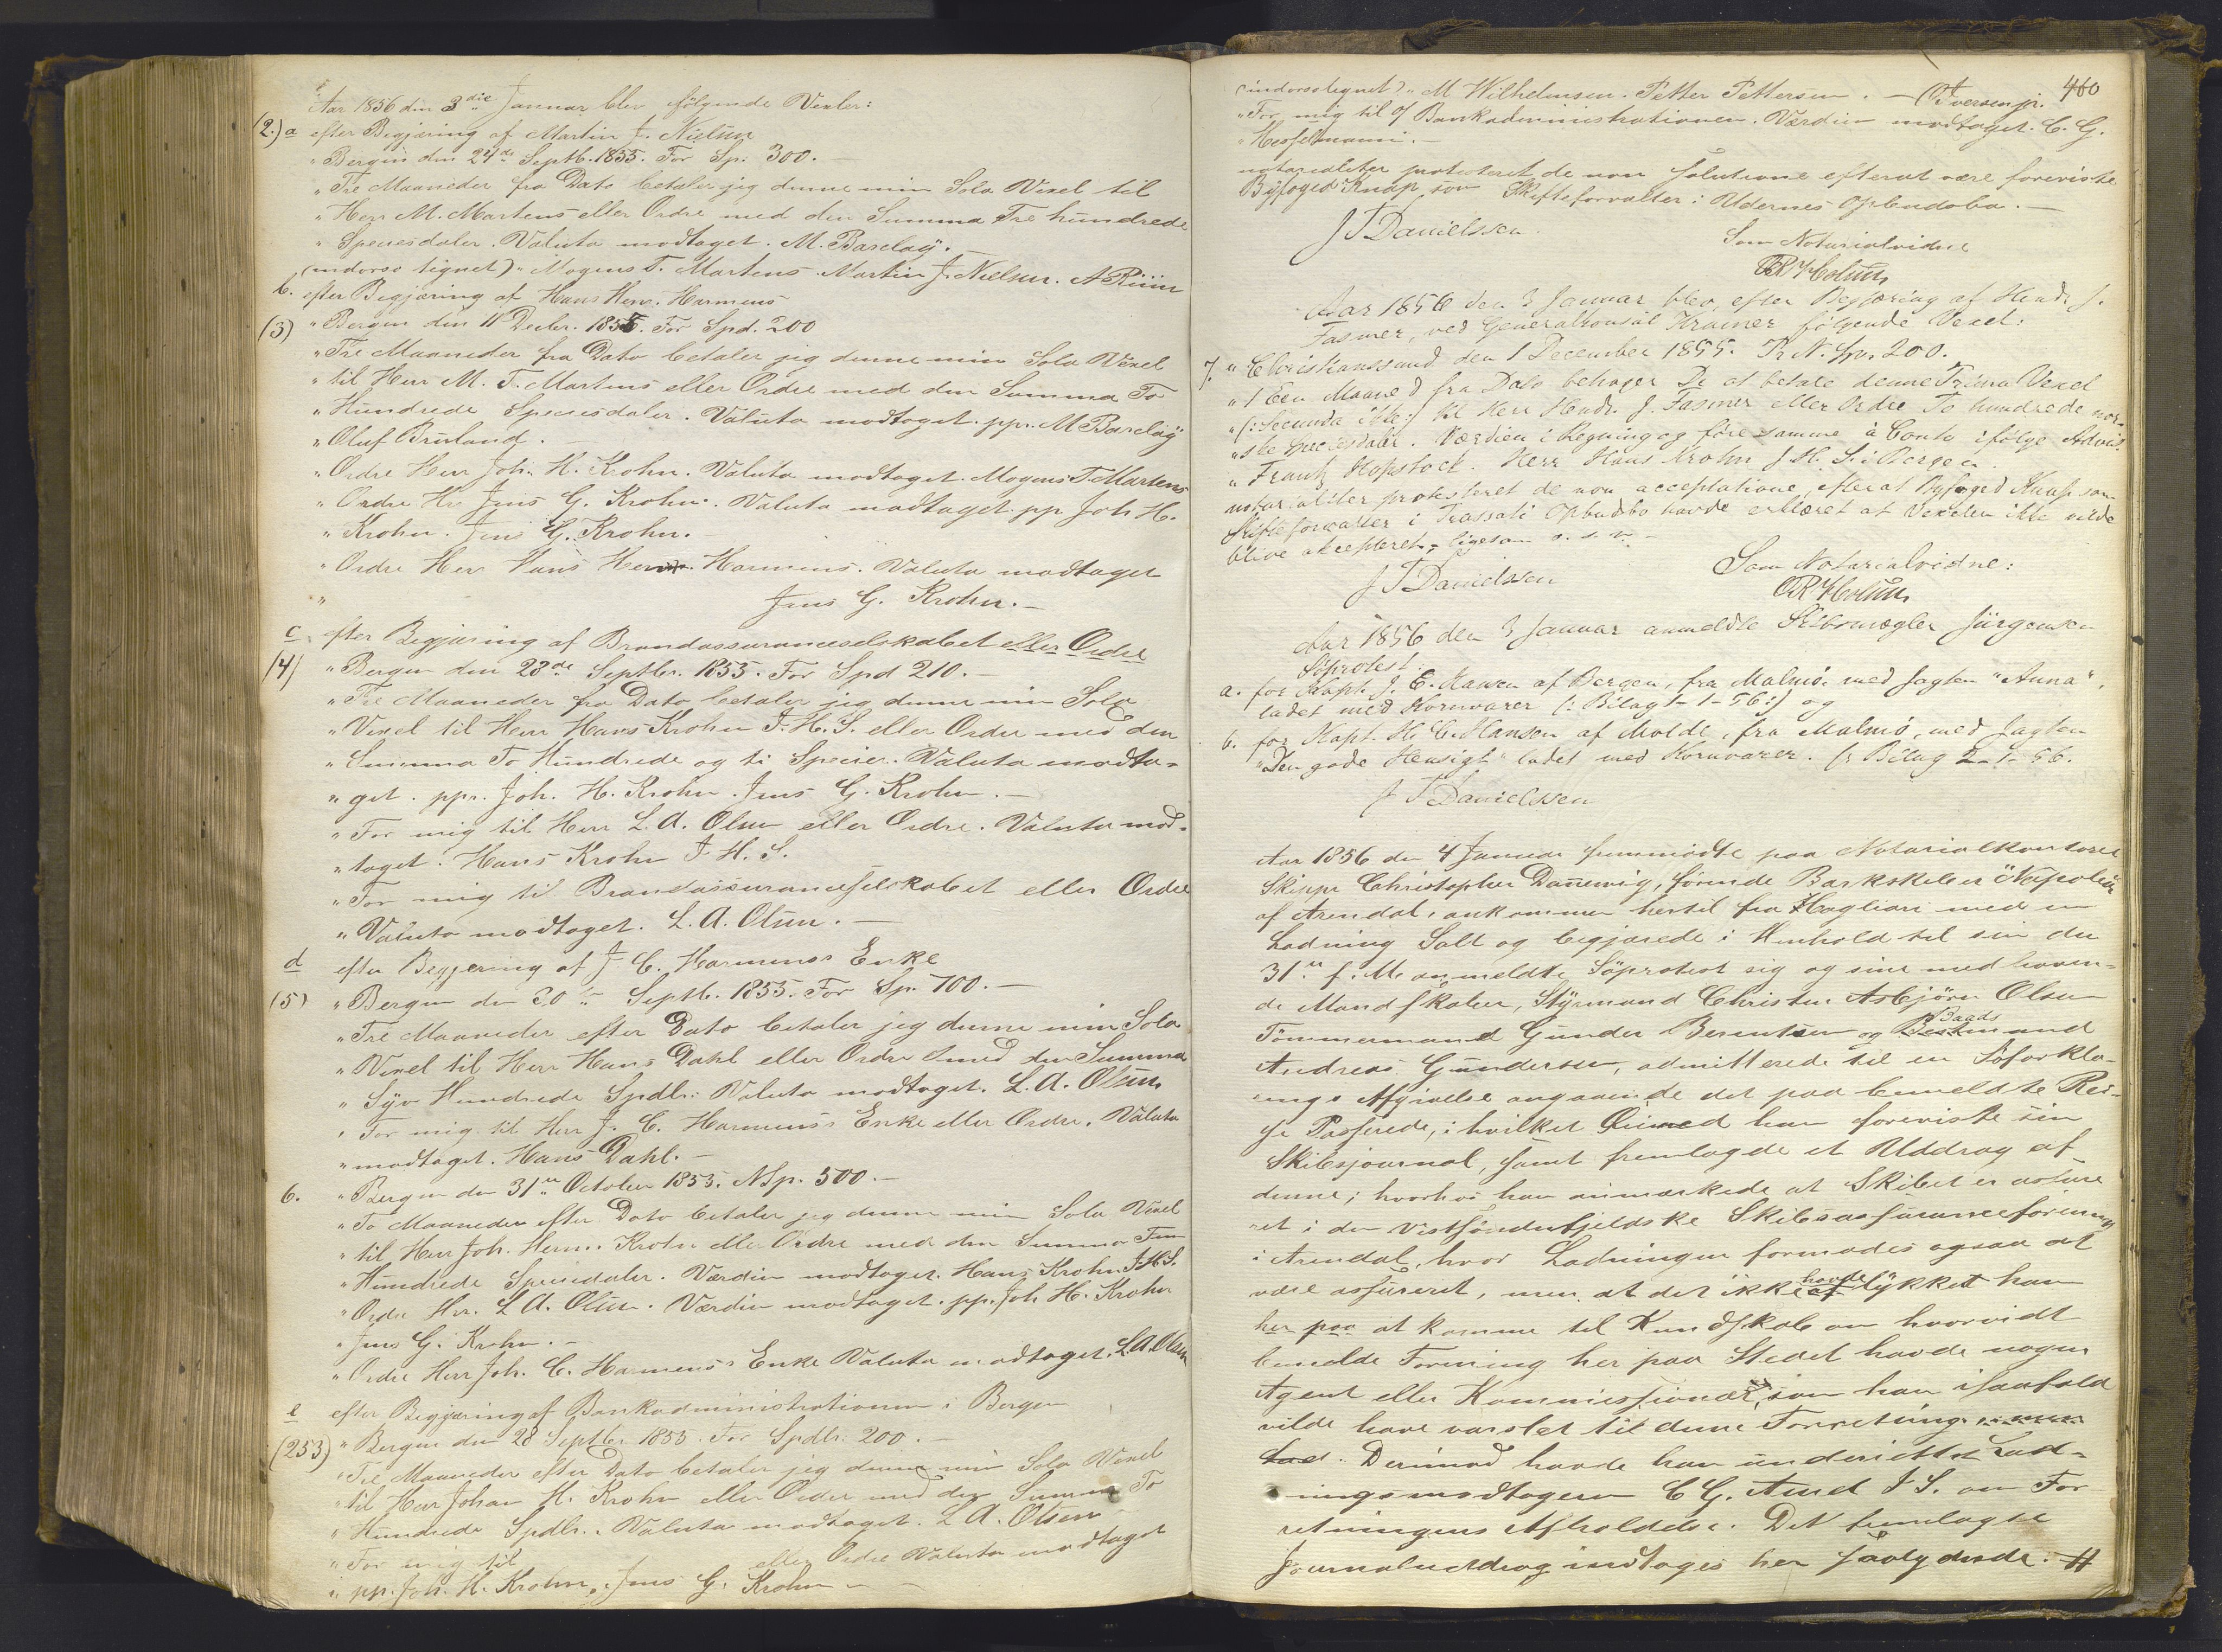 Aar 1856 den 3die Januar blev følgende Vexler:
(2.) a efter Begjæring af Martin J. Nielsen
"Bergen den 24de Septb. 1855. For Sp. 300.—
"Tre Maaneder fra Dato betaler jeg denne min Sola Vexel til
"Herr M. Martens eller Ordre med den Summa Tre hundrede
"Speciesdaler. Valuta modtaget. M. Barclay.
(indorso tegnet) "Mogens T. Martens. Martin J. Nielsen. A
b. efter Begjæring af Hans Herm. Harmens
(3) "Bergen den 11 Decbr. 1855. For Spd. 200
"Tre Maaneder fra Dato betaler jeg denne min Sola Vexel
"til Herr M. T. Martens eller Ordre med den Summa To
"Hundrede Speciesdaler. Valuta modtaget. pp. M Barclay
"Oluf Bruland.
"Ordre Herr Joh. H. Krohn. Valuta modtaget. Mogens T. Martens
"Ordre Hr. Jens G. Krohn. Valuta modtaget pp Joh H.
"Krohn. Jens G. Krohn.
"Ordre Herr Hans Herm. Harmens. Valuta modtaget
" Jens G. Krohn.—
c efter Begjæring af Brandassuranceselskabet eller Ordre
(4) "Bergen den 28de Septbr. 1855. For Spd 210.—
"Tre Maaneder fra Dato betaler jeg denne min Sola
"Vexel til Herr Hans Krohn J. H. S. eller Ordre med den
"Summa To Hundrede og ti Specier. Valuta modta-
"get. ppr. Joh. H. Krohn. Jens G. Krohn.—
"For mig til Herr L. A. Olsen eller Ordre. Valuta mod-
"taget. Hans Krohn J. H. S.
"For mig til Brandassuranceselskabet eller Ordre
"Valuta modtaget. L. A. Olsen.—
d efter Begjæring af J C. Harmens's Enke
(5) "Bergen den 20 Septb. 1855. For Sp. 700.—
"Tre Maaneder efter Dato betaler jeg denne min Sola
"Vexel til Herr Hans Dahl eller Ordre med den Summa
"Syv Hundrede Spdlr: Valuta modtaget. L. A. Olsen
"For mig til Herr J. C. Harmens's Enke eller Ordre. Valuta
"modtaget. Hans Dahl.—
6. "Bergen den 31te October 1855. NSp. 500.—
"To Maaneder efter Dato betaler jeg denne min Sola Vexel
"til Herr Joh. Herm. Krohn eller Ordre med den Summa Fem
"Hundrede Speciedaler. Værdien modtaget. Hans Krohn J. H. S.
"Ordre Hr. L A. Olsen. Værdien modtaget. pp. Joh H. Krohn
"Jens G. Krohn.—
"Ordre Herr Joh. C. Harmens's Enke Valuta modtaget. L. A. Olsen
e efter Begjæring af Bankadministrationen i Bergen
(253) "Bergen den 28 Septbr. 1855. For Spdlr. 200.—
"Tre Maaneder efter Dato betaler jeg denne min Sola Vexel
"til Herr Johan H. Krohn eller Ordre med den Summa To
"Hundrede Spdlr. Valuta modtaget. L A. Olsen
"For mig til eller Ordre Valuta modtaget
"pp. Joh. H. Krohn. Jens G. Krohn—
460
(indorso tegnet) "M Wilhelmsen. Petter Pettersen.— Iversen jr.
"For mig til Bankadministrationen. Værdien modtaget. C. G.
"Hesselmann.—
notarialiter protesteret de non solutione efterat være foreviste
Byfoged Knap som Skifteforvalter i Udernes Opbudsbo.—
J T Danielssen Som Notarialvidne
Aar 1856 den 3 Januar blev, efter Begjæring af Hendr J.
Fasmer, ved Generalkonsul Krämer følgende Vexel:
7. "Christianssund den 1 December 1855. Pr N. Sp. 200.
"1 Een Maaned fra Dato behager De at betale denne Prima Vexel
"(: Secunda ikke) til Herr Hendr. J. Fasmer eller Ordre To hundrede nor-
"ske Speciesdaler. Værdien i Regning og före samme à Conto ifölge Advis.
"Frantz Hopstock. Herr Hans Krohn J. H. S. i Bergen.
notarialiter protesteret de non acceptatione, efterat Byfoged Knap som
Skifteforvalter i Trassati Opbudsbo havde erklæret at Vexelen ikke vilde
blive accepteret, ligesom o. s. v.—
J T Danielssen Som Notarialvidne:
Aar 1856 den 3 Januar anmeldte Skibsmægler Jürgensen
Söprotest.
a. for Kapt. J. E. Hansen af Bergen, fra Malmö, med Jagten "Anna",
ladet med Kornvarer (: Bilag 1-1-56:) og
b. for Kapt. H. C. Hansen af Molde, fra Malmö, med Jagten
"Den gode Hensigt" ladet med Kornvarer. (: Bilag 2-1-56.
J T Danielssen
Aar 1856 den 4 Januar fremmödte paa Notarialkontoret
Skipper Christopher Dannevig, förende Barkskibet "Napoleon
af Arendal, ankommen hertil fra Kagliari med en
Ladning Salt og begjærede i Henhold til sin den
31te f. M. anmeldte Söprotest sig og sine medhaven-
de Mandskaber, Styrmand Christen Asbjörn Olsen
Tömmermand Gunder Berentsen og Baads Bestmand
Andreas Gundersen, admitterede til en Söforkla-
rings Afgivelse angaaende det paa bemeldte Rei-
se Passerede, i hvilket Öiemed han foreviste sin
Skibsjournal, samt fremlagde et Uddrag af
denne; hvorhos han anmærkede at Skibet er assure-
ret i den Vestsöndenfjeldske Skibsassuranceforening
i Arendal, hvor Ladningen formodes ogsaa at
være assureret, men at det ikke havde lykket ham
her paa at komme til Kundskab om hvorvidt
bemeldte Forening her paa Stedet havde nogen
Agent eller Kommissionær, som han isaafald
vilde have varslet til denne Forretning.
Lad. Derimod havde han underrettet Lad-
ningsmodtageren C G. Amel J S. om For
retningens Afholdelse. Det fremlagte
Journaluddrag indtages her saalydende: #